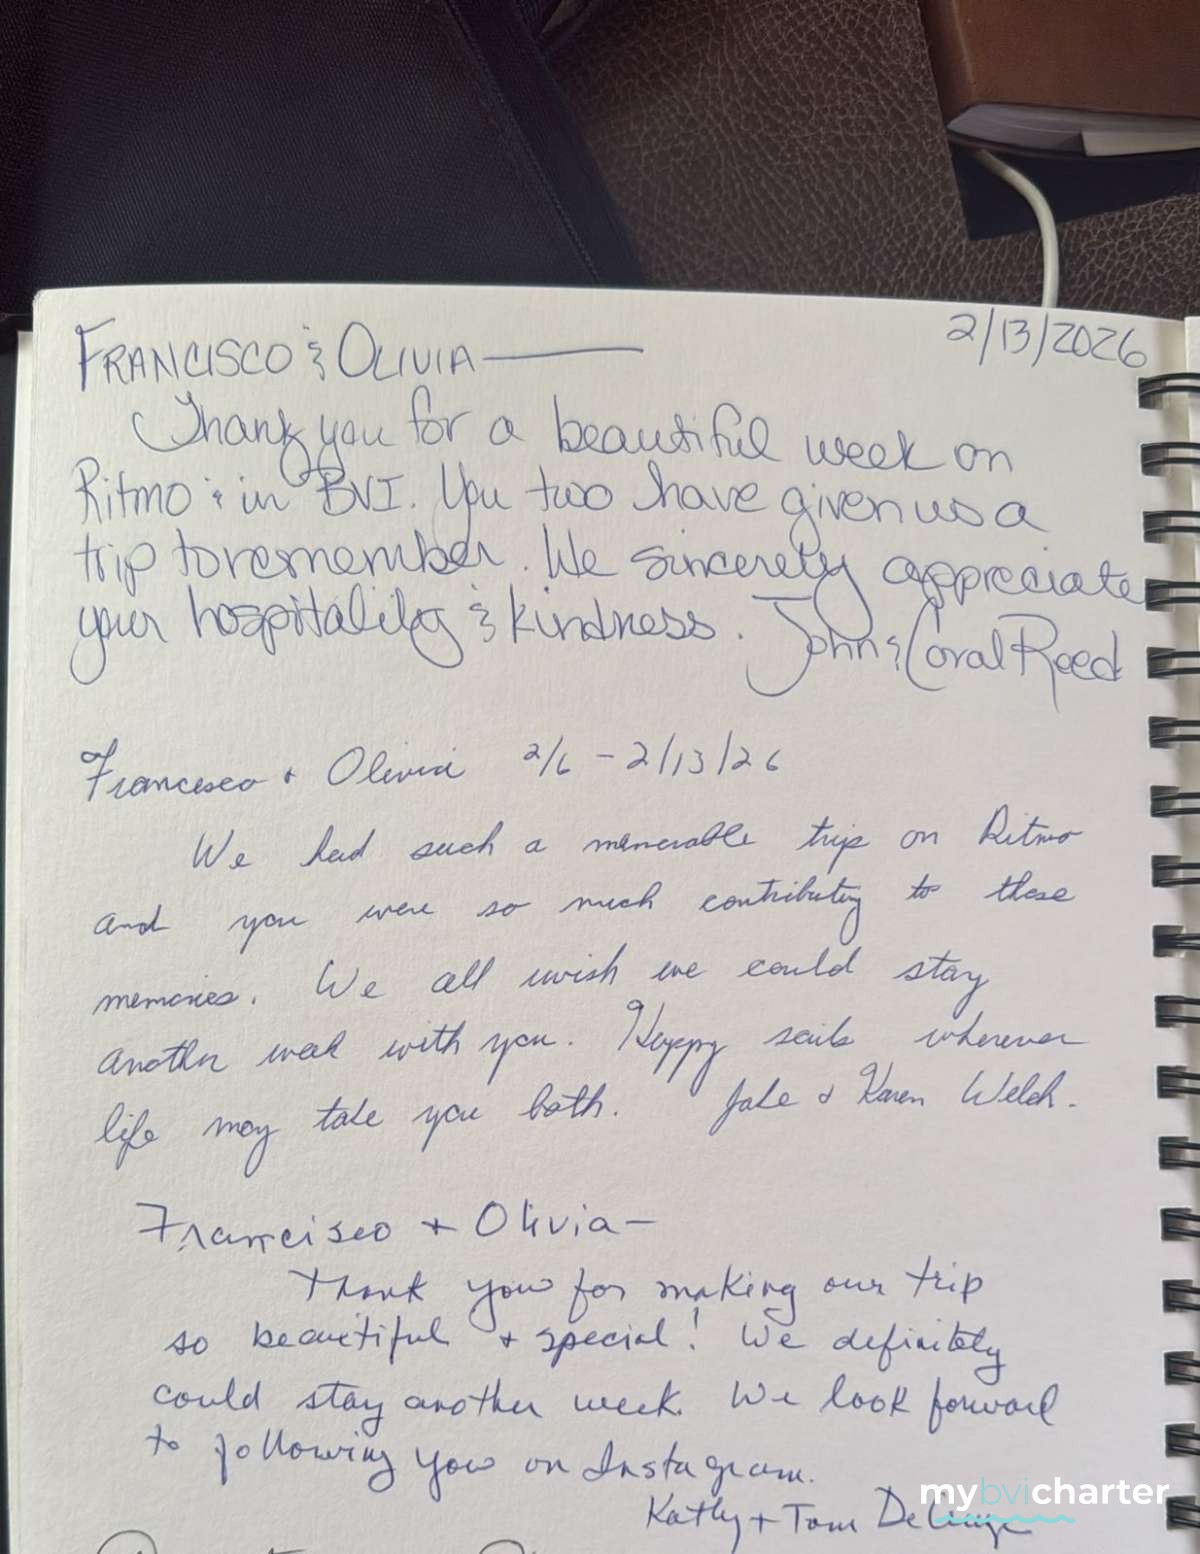 FRANCISCO & OLIVIA —
2/13/2026
Thank you for a beautiful week on
Ritmo & in BVI. You two have given us a
trip to remember. We sincerely appreciate
your hospitality & kindness. John & Coral Reed
Francesco + Olivia 2/6 - 2/13/26
We had such a memorable trip on Ritmo
and you were so much contributing to these
memories. We all wish we could stay
another week with you. Happy sails wherever
life may take you both. Jake & Karen Welch.
Francisco + Olivia -
Thank you for making our trip
so beautiful + special! We definitely
could stay another week. We look forward
to following you on Instagram.
mybvicharter
Kathy + Tom